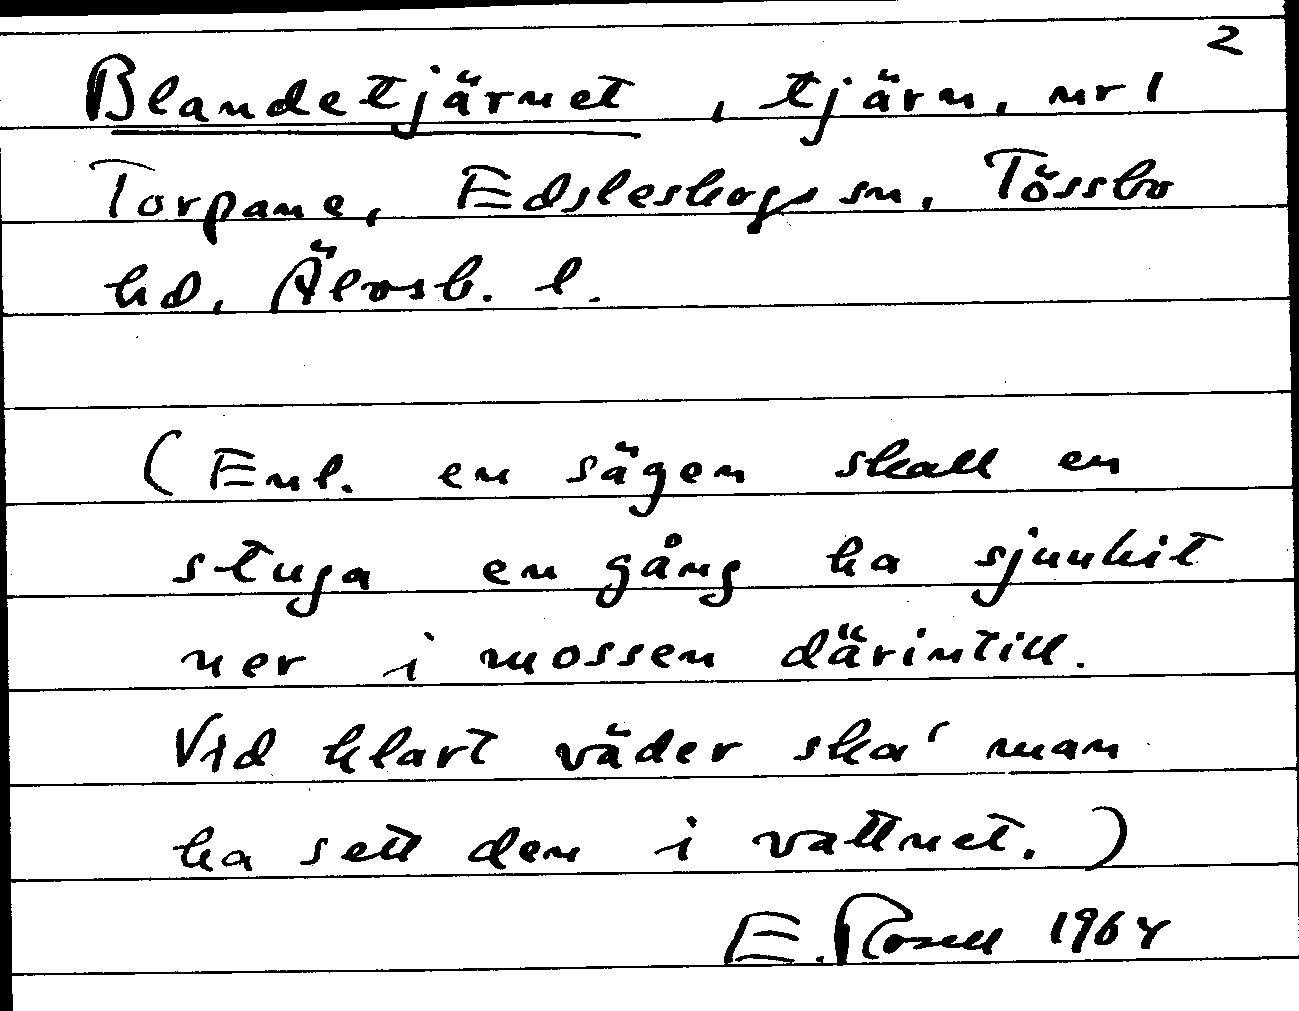 2
Blandetjärnet, tjärn, nr 1
Torpane, Edsleskogs sn, Tössbo
hd, Älvsb. l.
(Enl. en sägen skall en
stuga en gång ha sjunkit
ner i mossen därintill.
Vid klart väder ska' man
ha sett den i vattnet.)
E. Rosell 1964